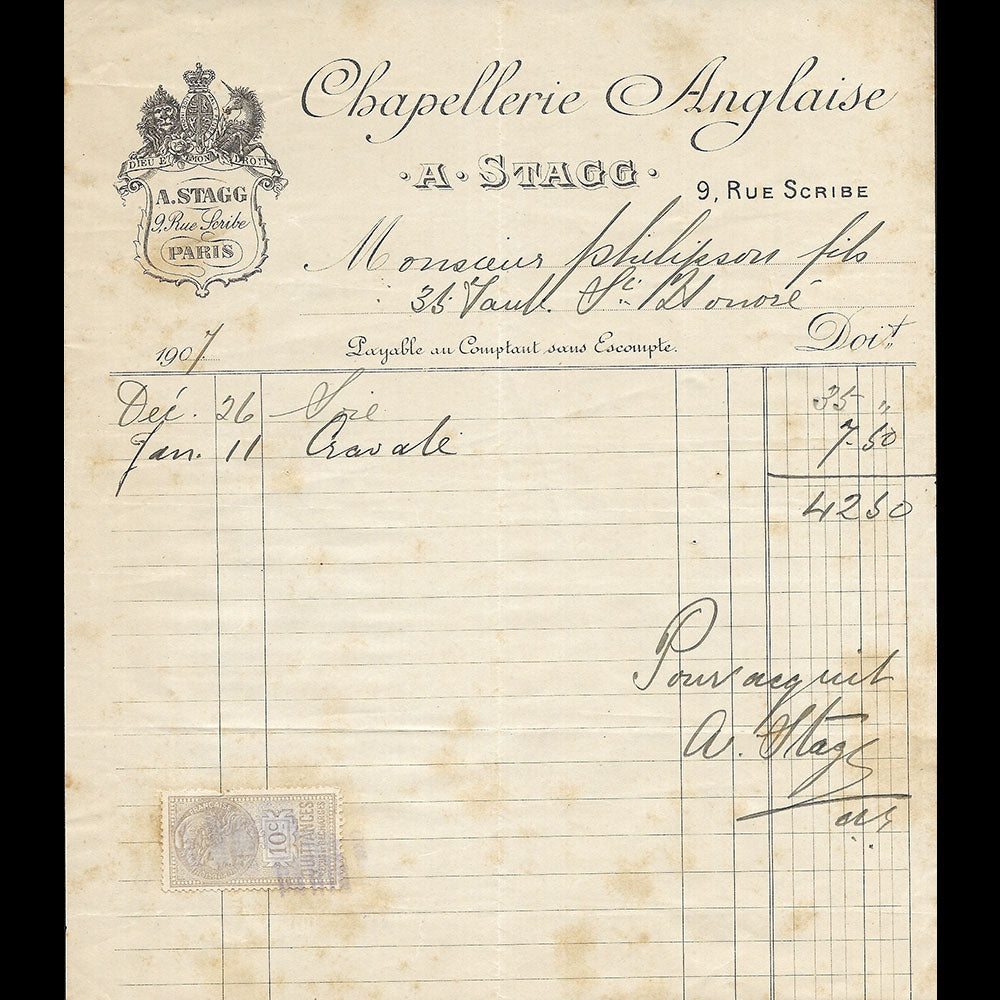 Chapellerie Anglaise
DIEU ET MON DROIT
A. STAGG
9, Rue Scribe
PARIS
· A · STAGG ·
9, RUE SCRIBE
Monsieur Philipson fils
35 Faub. St. Honoré
1907
Payable au Comptant sans Escompte.
Doit
Déc. 26 Soie 35 "
Jan. 11 Cravate 7.50
4250
Pour acquit
A. Stagg
10c
QUITTANCES